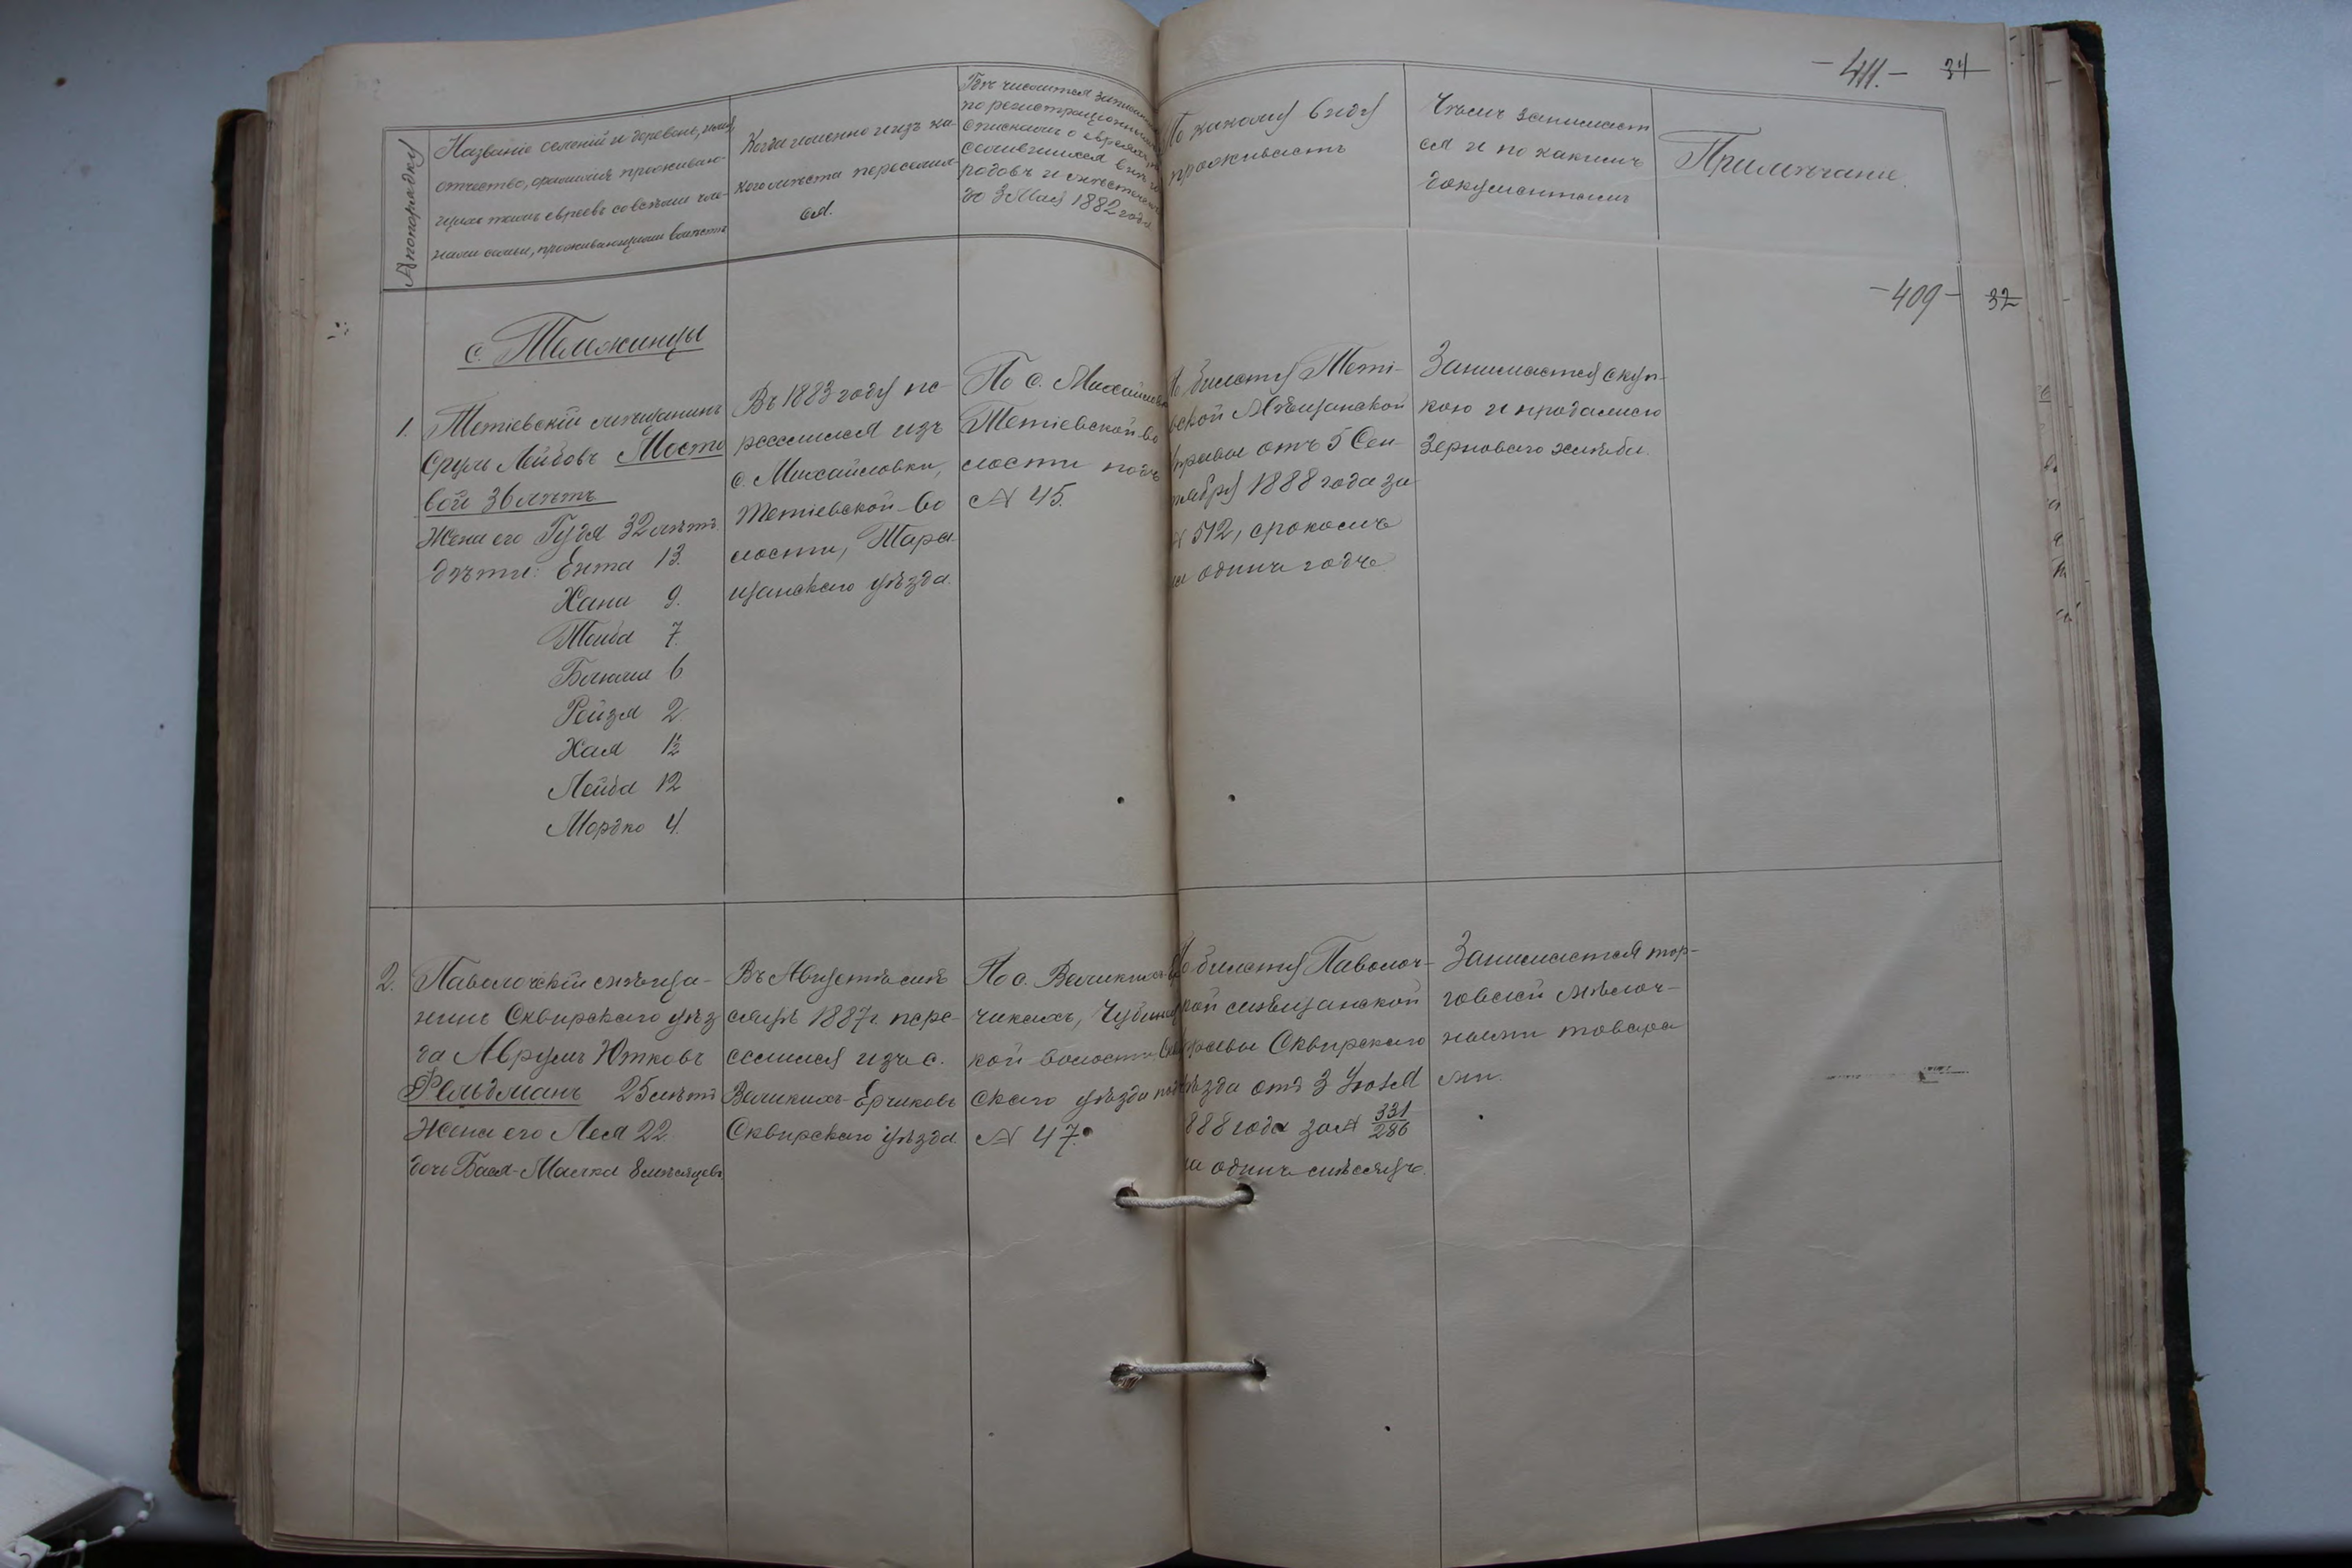 -411.- 34
№ по порядку
Названіе селеній и деревень, имя,
отчество, фамилія проживаю-
щихъ тамъ евреевъ со всѣми чле-
нами семьи, проживающими вмѣстѣ
Когда именно и изъ ка-
кого мѣста переселил-
ся.
Гдѣ числится записан
по регистраціоннымъ
спискамъ о евреяхъ,
селившихся внѣ го
родовъ и мѣстечекъ
до 3 Мая 1882 года
По какому виду
проживаетъ
Чѣмъ занимает
ся и по какимъ
документамъ
Примѣчаніе.
-409- 32
с. Тележинцы
1.
Тетіевскій мѣщанинъ
Сруль Лейбовъ Мосто
вой 36 лѣтъ
Жена его Гудя 32 лѣтъ
дѣти: Ента 13.
Хана 9.
Тауба 7.
Блюма 6
Рейзя 2.
Хая 1/2
Лейба 12
Мордко 4.
Въ 1883 году пе-
реселился изъ
с. Михайловки,
Тетіевской во
лости, Тара-
щанскаго уѣзда.
По с. Михайловкѣ
Тетіевской во
лости подъ
№ 45.
По билету Тетi-
евской Мѣщанской
Управы отъ 5 Сен-
тября 1888 года за
№ 512, срокомъ
на одинъ годъ
Занимается скуп-
кою и продажею
зерноваго хлѣба.
2.
Паволочскій мѣща-
нинъ Сквирскаго уѣз
да Аврумъ Ютковъ
Фельдманъ 25 лѣтъ
Жена его Лея 22.
дочь Бася-Малка 8 мѣсяцевъ.
Въ Августѣ мѣ
сяцѣ 1887 г. пере-
селился изъ с.
Великихъ-Ерчиковъ
Сквирскаго уѣзда.
По с. Великихъ-Ер
чикахъ, Чубинец
кой волости Сквир
скаго уѣзда подъ
№ 47.
По билету Паволоч-
кой мѣщанской
управы Сквирскаго
уѣзда отъ 3 Іюля
1888 года за № 331/286
на одинъ мѣсяцъ.
Занимается тор-
говлей мѣлоч-
ными товара
ми.